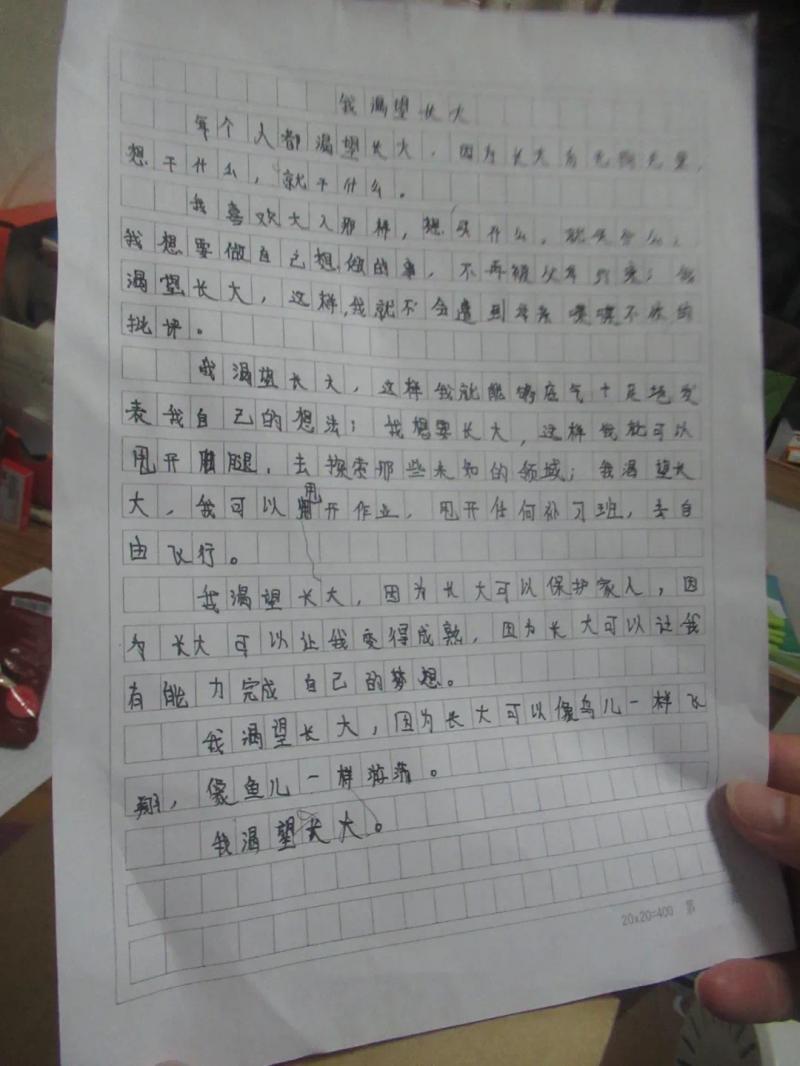 我渴望长大
每个人都渴望长大，因为长大有无限力量，
想干什么，就干什么。
我喜欢大人那样，想买什么，就买什么；
我想要做自己想做的事，不再被父母约束；我
渴望长大，这样，我就不会遭到母亲喋喋不休的
批评。
我渴望长大，这样我就能够底气十足地发
表我自己的想法；我想要长大，这样我就可以
甩开腿，去探索那些未知的领域；我渴望长
大，我可以甩开作业，甩开任何补习班，去自
由飞行。
我渴望长大，因为长大可以保护家人，因
为长大可以让我变得成熟，因为长大可以让我
有能力完成自己的梦想。
我渴望长大，因为长大可以像鸟儿一样飞
翔，像鱼儿一样游荡。
我渴望长大。
20x20=400 第